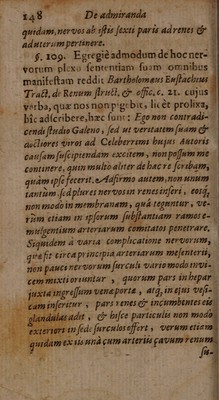 148 De admiranda
quidam, nervos ab istis sexti paris ad renes &
ad uterum pertinere.
§. 109. Egregiè admodum de hoc ner-
vorum plexo sententiam suam omnibus
manifestam reddit Bartholomæus Eustachius
Tract. de Renum struct. & offic. c. 21. cujus
verba, quæ nos non pigebit, licèt prolixa,
hîc adscribere, hæc sunt: Ego non contradi-
cendi studio Galeno, sed ut veritatem suam &
auctiores viros ad Celeberrimi hujus Autoris
causam suscipiendam excitem, non possum me
continere, quin multo aliter de hac re scribam,
quàm ipse fecerit. Affirmo autem, non unum
tantùm, sed plures nervos in renes inseri, eosq́,
non modo in membranam, quâ teguntur, ve-
rùm etiam in ipsorum substantiam ramos e-
mulgentium arteriarum comitatos penetrare.
Siquidem à varia complicatione nervorum,
quæ fit circa principia arteriarum mesenterii,
non pauci nervorum surculi vario modo invi-
cem mixti oriuntur, quorum pars in hepar
juxta ingressum venæ portæ, atq́, in ejus vesi-
cam inseritur, pars renes & incumbentes eis
glandulas adit, & hisce particulis non modo
exteriori in sede surculos offert, verum etiam
quidam ex iis unà cum arteriis cavum renum
su-